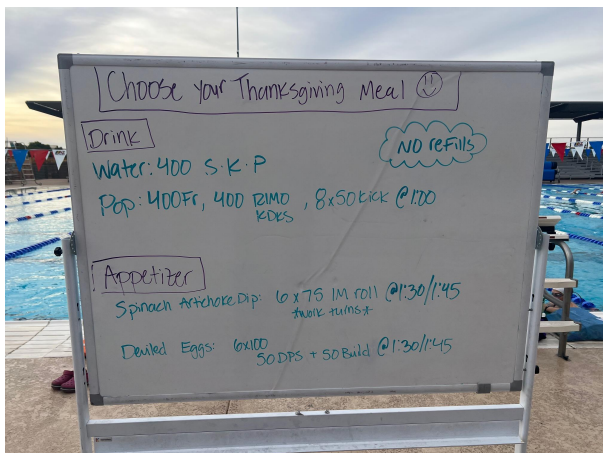 Choose your Thanksgiving Meal
Drink
NO refills
Water: 400 S·K·P
Pop: 400Fr, 400 RIMO, 8x50 Kick @1:00
KDKS
Appetizer
Spinach Artichoke Dip: 6 x 75 IM roll @1:30/1:45
*work turns*
Deviled Eggs: 6x100
50 DPS + 50 Build @1:30/1:45